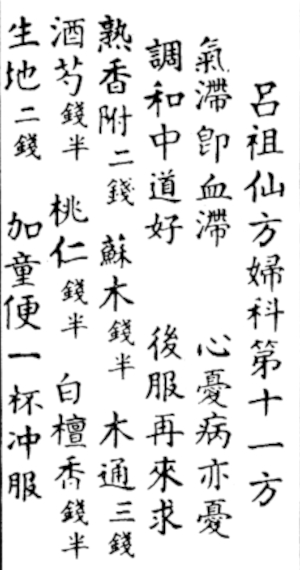 呂祖仙方婦科第十一方
氣滯卽血滯 心憂病亦憂
調和中道好 後服再來求
熟香附二錢 蘇木錢半 木通三錢
酒芍錢半 桃仁錢半 白檀香錢半
生地二錢 加童便一杯冲服